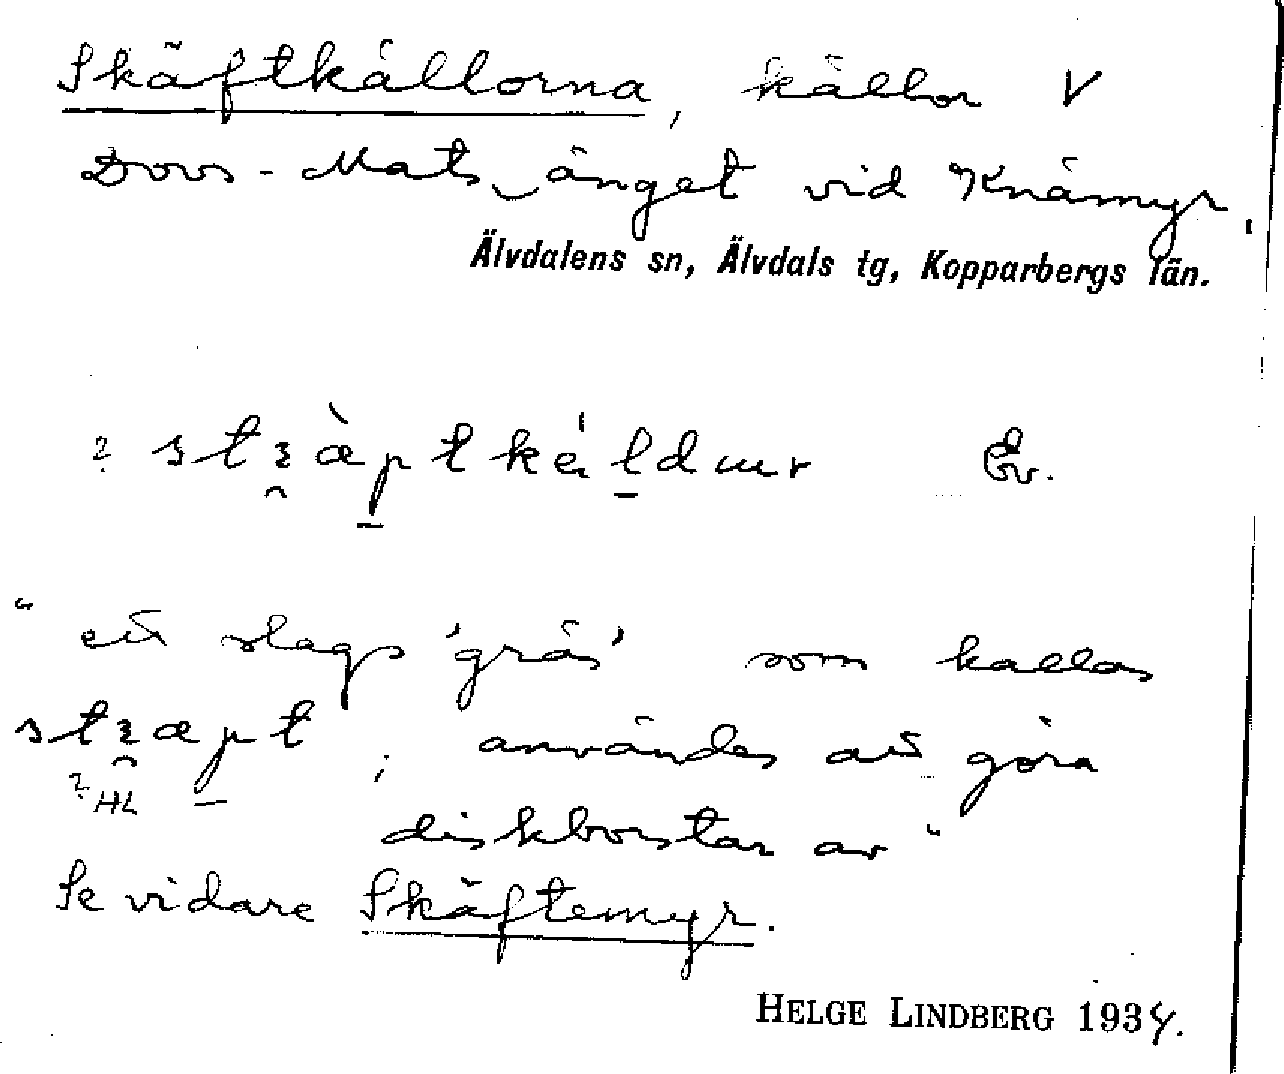 Skäftkällorna, källor V
Dovs-Mats änget vid Knämyr.
Älvdalens sn, Älvdals tg, Kopparbergs län.
? Ev.
"ett slags 'gräs' som kallas
; användes att göra
? HL
diskborstar av"
Se vidare Skäftemyr.
HELGE LINDBERG 1934.